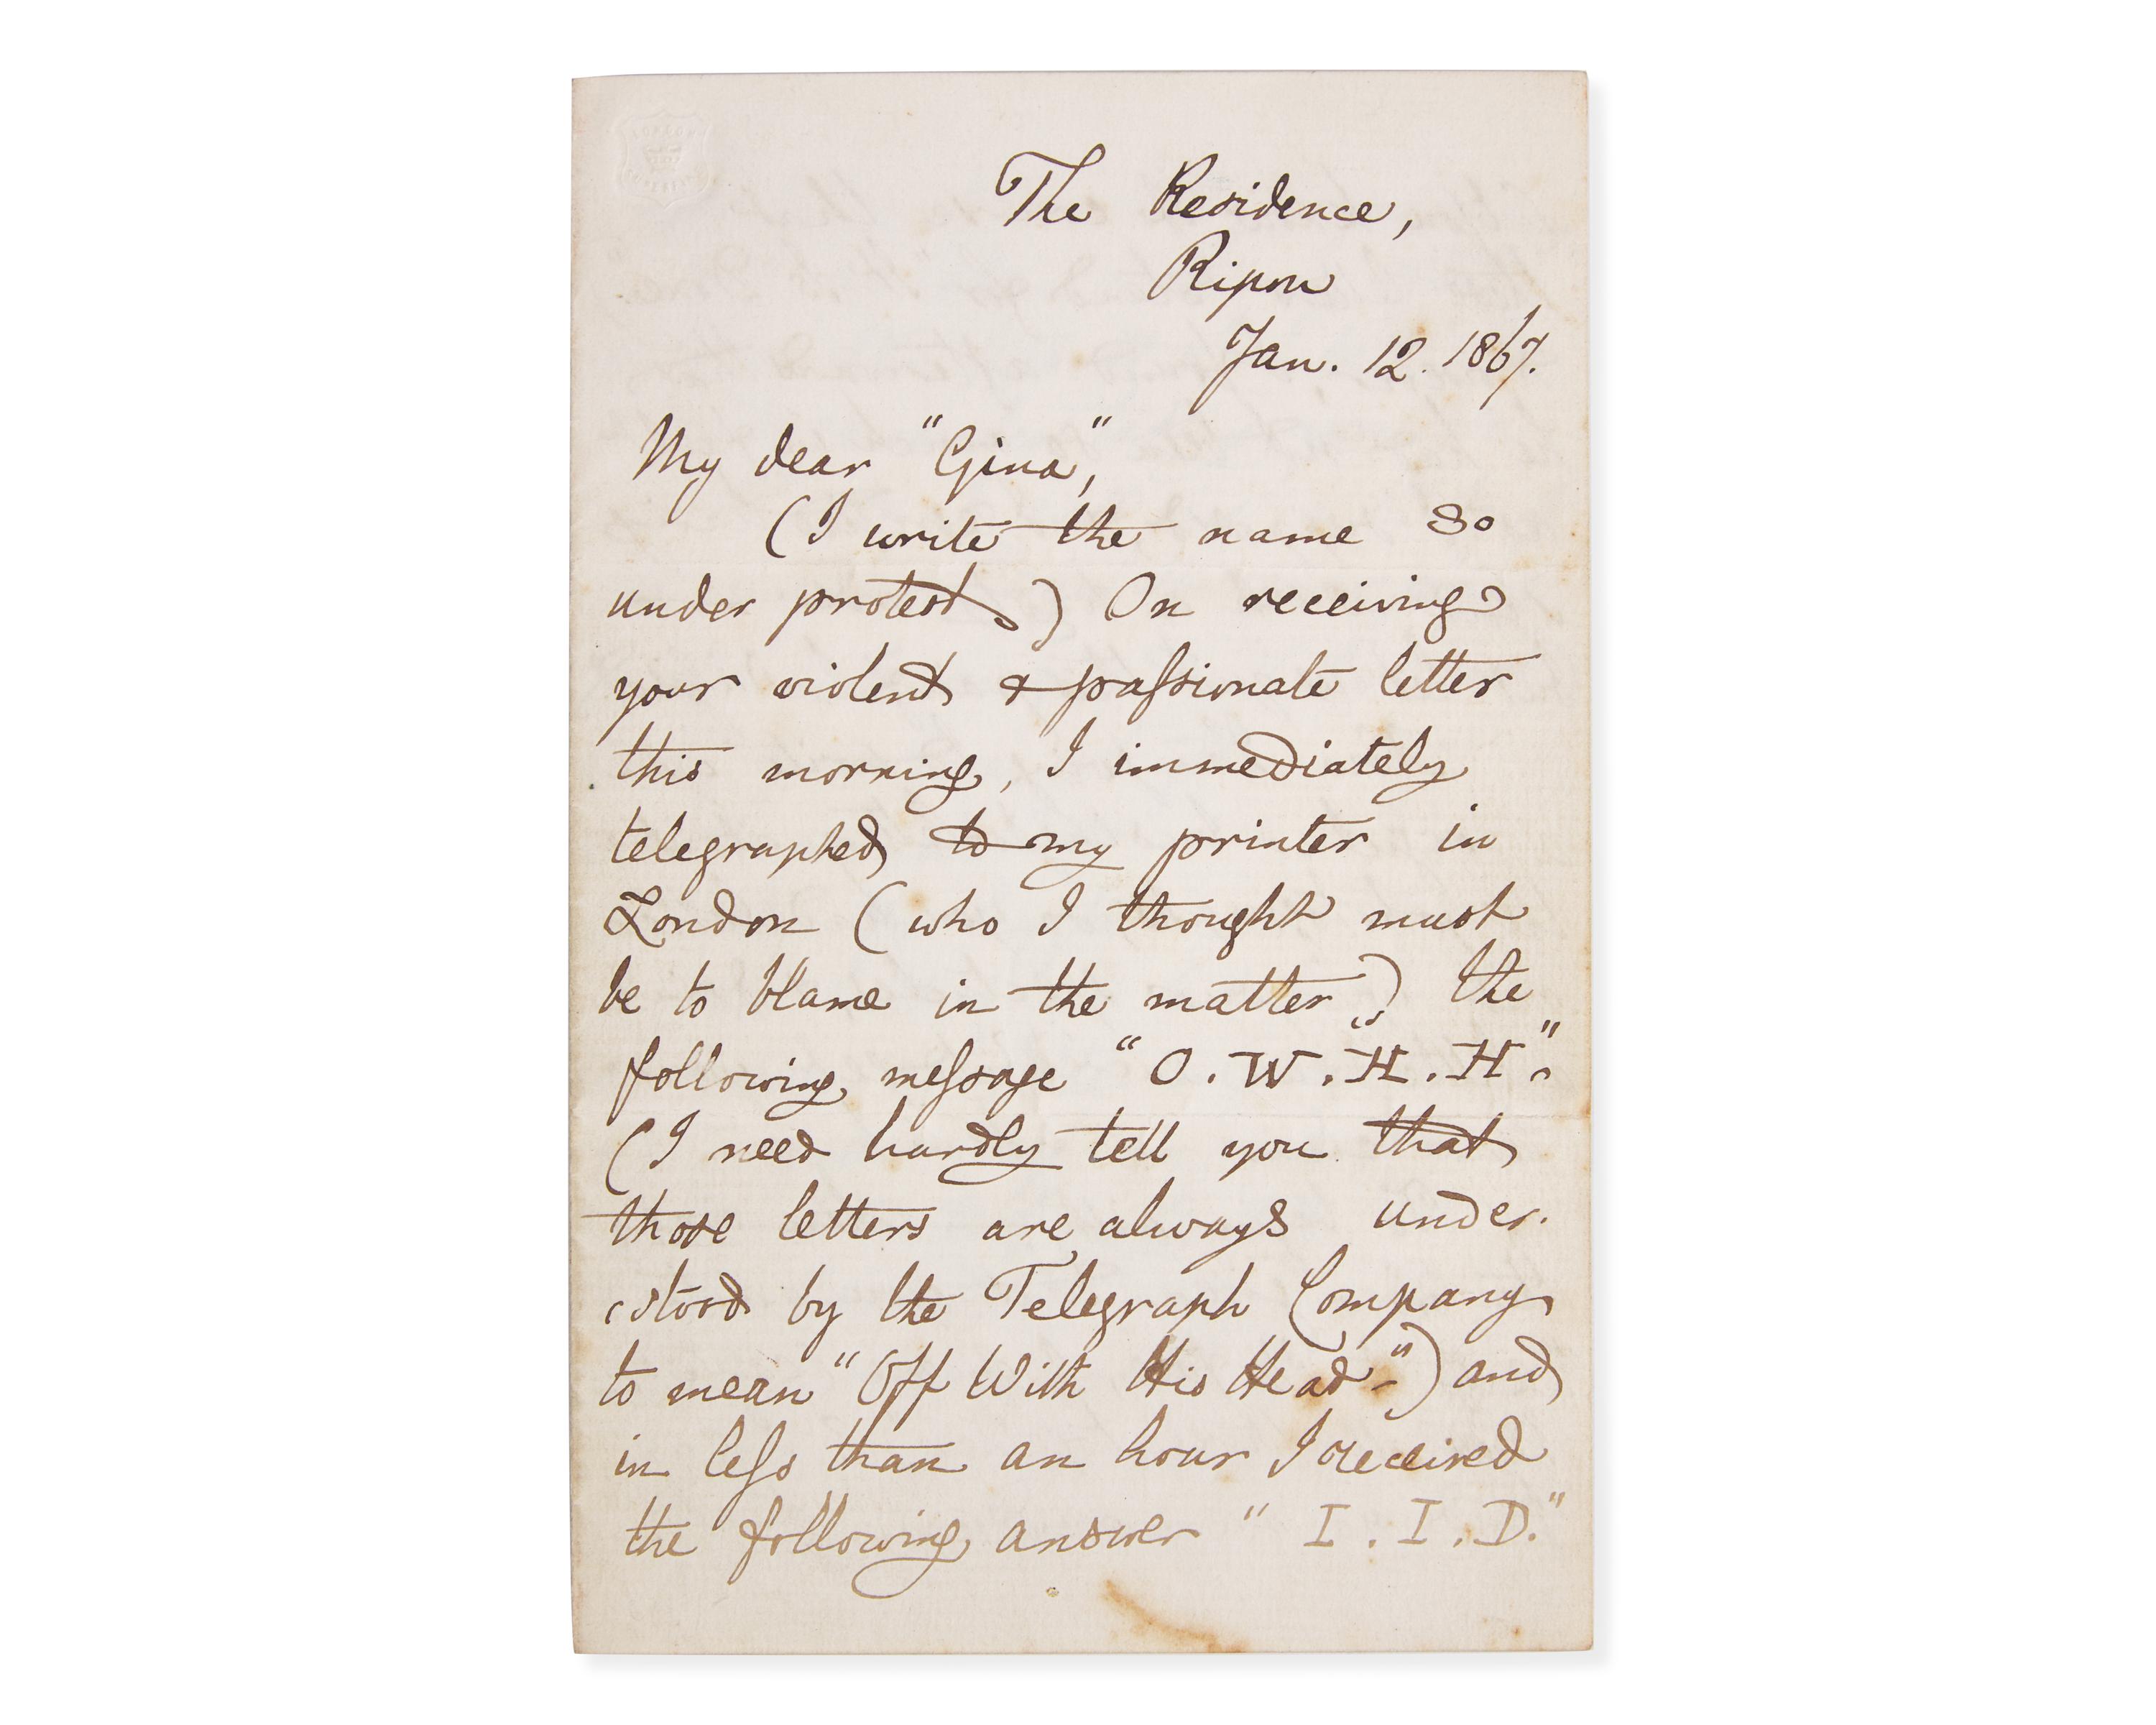 The Residence,
Ripon
Jan. 12. 1867.
My dear "Gina",
(I write the name so
under protest) On receiving
your violent & passionate letter
this morning, I immediately
telegraphed to my printer in
London (who I thought must
be to blame in the matter) the
following message "O. W. H. H".
(I need hardly tell you that
those letters are always under-
-stood by the Telegraph Company
to mean "Off With His Head-") and
in less than an hour I received
the following answer "I. I. D."